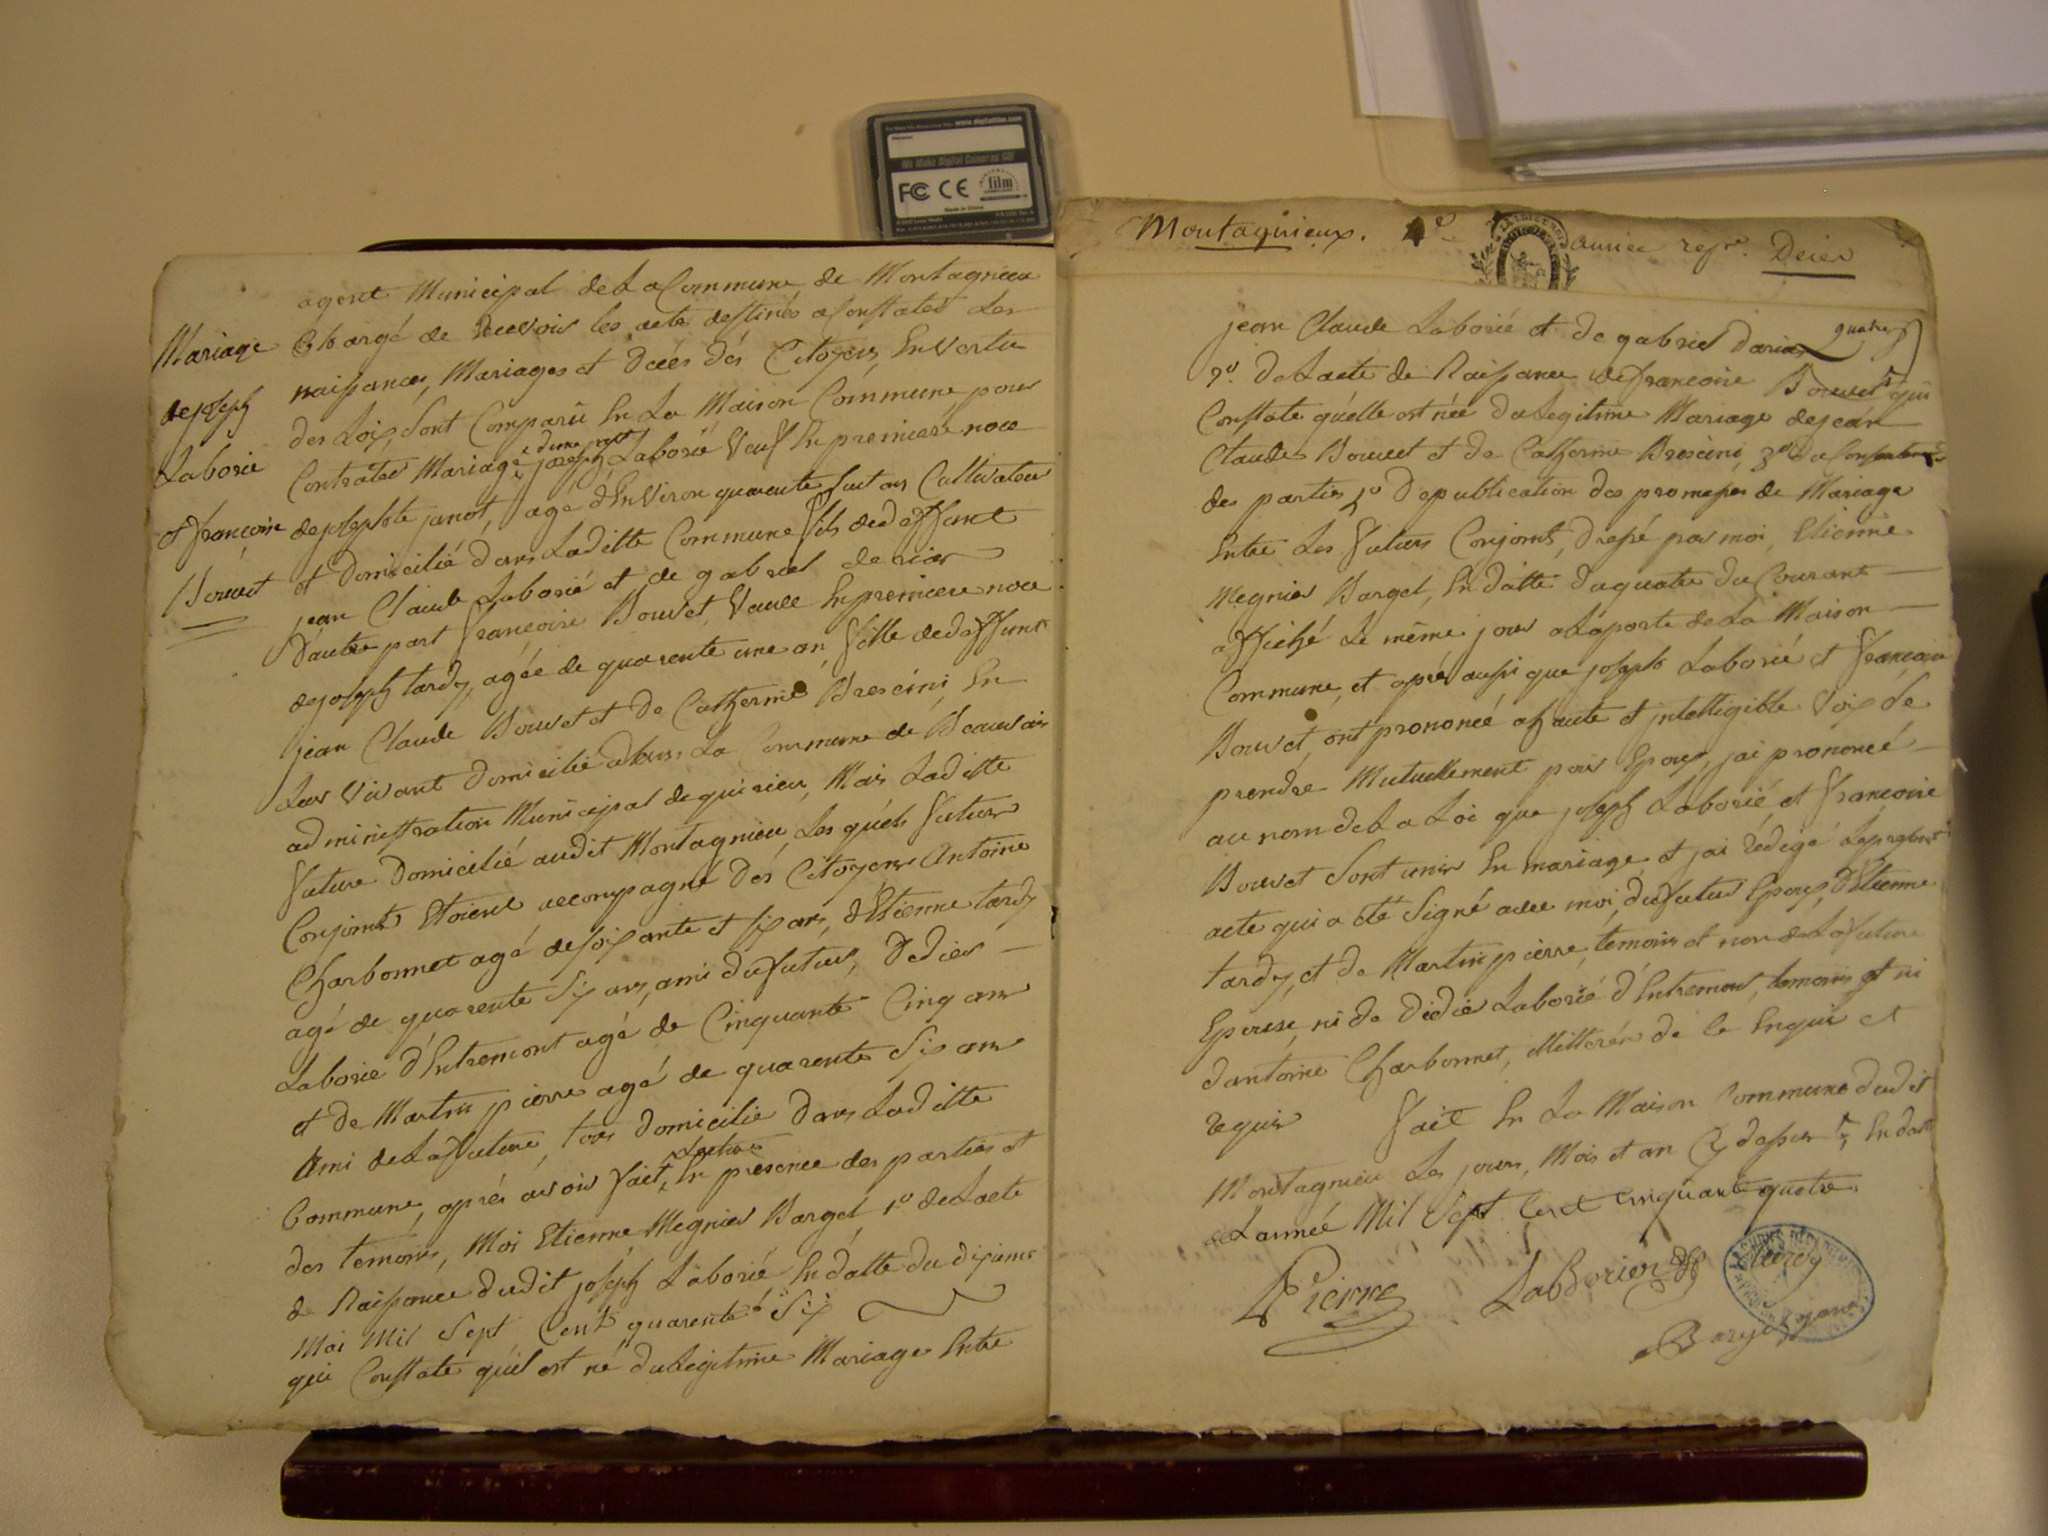 www.digitalfilm.com
We Make Digital Cameras GO!
FC CE film
Montagnieux. année rep.ne
agent Municipal de La Commune de Montagnieu
Mariage
Chargé de recevoir les acte destinés a Constater Les
naissances, Mariages et décés dés Citoyens, En vertu
de joseph
des Loix, sont Comparû En La Maison Commune pour
Laborié
Contrater Mariage, d'une part joseph Laborié Veuf En premiere noce
et françoise
de josephte janot, agé d'Environ quarente huit ans Cultivateur
Bouvet
et domicilié dans Laditte Commune fils de deffunt
jean Claude Laborié et de gabriel
D'autre part françoise Bouvet, Veuve En premiere noce
de joseph tardy, agée de quarente une an, fille de deffunt
jean Claude Bouvet et de Catherine Brescini, En
Leur Vivant domicilié dans La Commune de Beauvoir
administration Municipal de quirieu, Mais Laditte
future Domicilié audit Montagnieu, Les quels futur
Conjoints Etoient accompagné dés Citoyens Antoine
Charbonnet agé de soixante et six ans, d'Etienne tardy
agé de quarente six ans, ami du futur, Dedier
Laborie d'Entremont agé de Cinquante Cinq ans
et de Martin pierre agé de quarente Six ans
Ami de La future, tous domicilié dans Laditte
Commune, aprés avoir fait Lecture En presence des parties et
des temoins, Moi Etienne Megnier Bargel 1º de Lacte
de Naissance dudit joseph Laborié En datte du dixieme
Mai Mil Sept Cent quarente Six
qui Constate quil est né du Legitime Mariage Entre
jean Claude Laborié et de gabriel
2º. De Lacte de Naissance de françoise Bouvet qui
Constate quélle est née du Legitime Mariage de jean
Claude Bouvet et de Catherine Brescini, 3º du
des parties de publication des promesses de Mariage
Entre Les futurs Conjoints, dressé par moi, Etienne
Megnier Bargel, En datte du quatre du Courant
affiché Le même jour a La porte de La Maison
Commune, et aprés aussi que joseph Laborié et françoise
Bouvet, ont prononcé a haute et jntelligible Voix de
prendre Mutuellement pour Epoux, jai prononcé
au nom de La Loi que joseph Laborié et françoise
Bouvet sont unis En mariage et jai rédigé Le present
acte qui a été signé avec moi, du futur Epoux, d'Etienne
tardy, et de Martin pierre, temoins et non de La future
Epouse, ni de Didié Laborié d'Entremont, temoins et ni
dantoine Charbonnet, illitterés de ce Enquis et
requis fait En La Maison Commune dudit
Montagnieu Les jours, Mois et an Cy dessus En datte
de Lannée Mil Sept Cent Cinquante quatre
Pierre Laborier tardy
Bargel agent